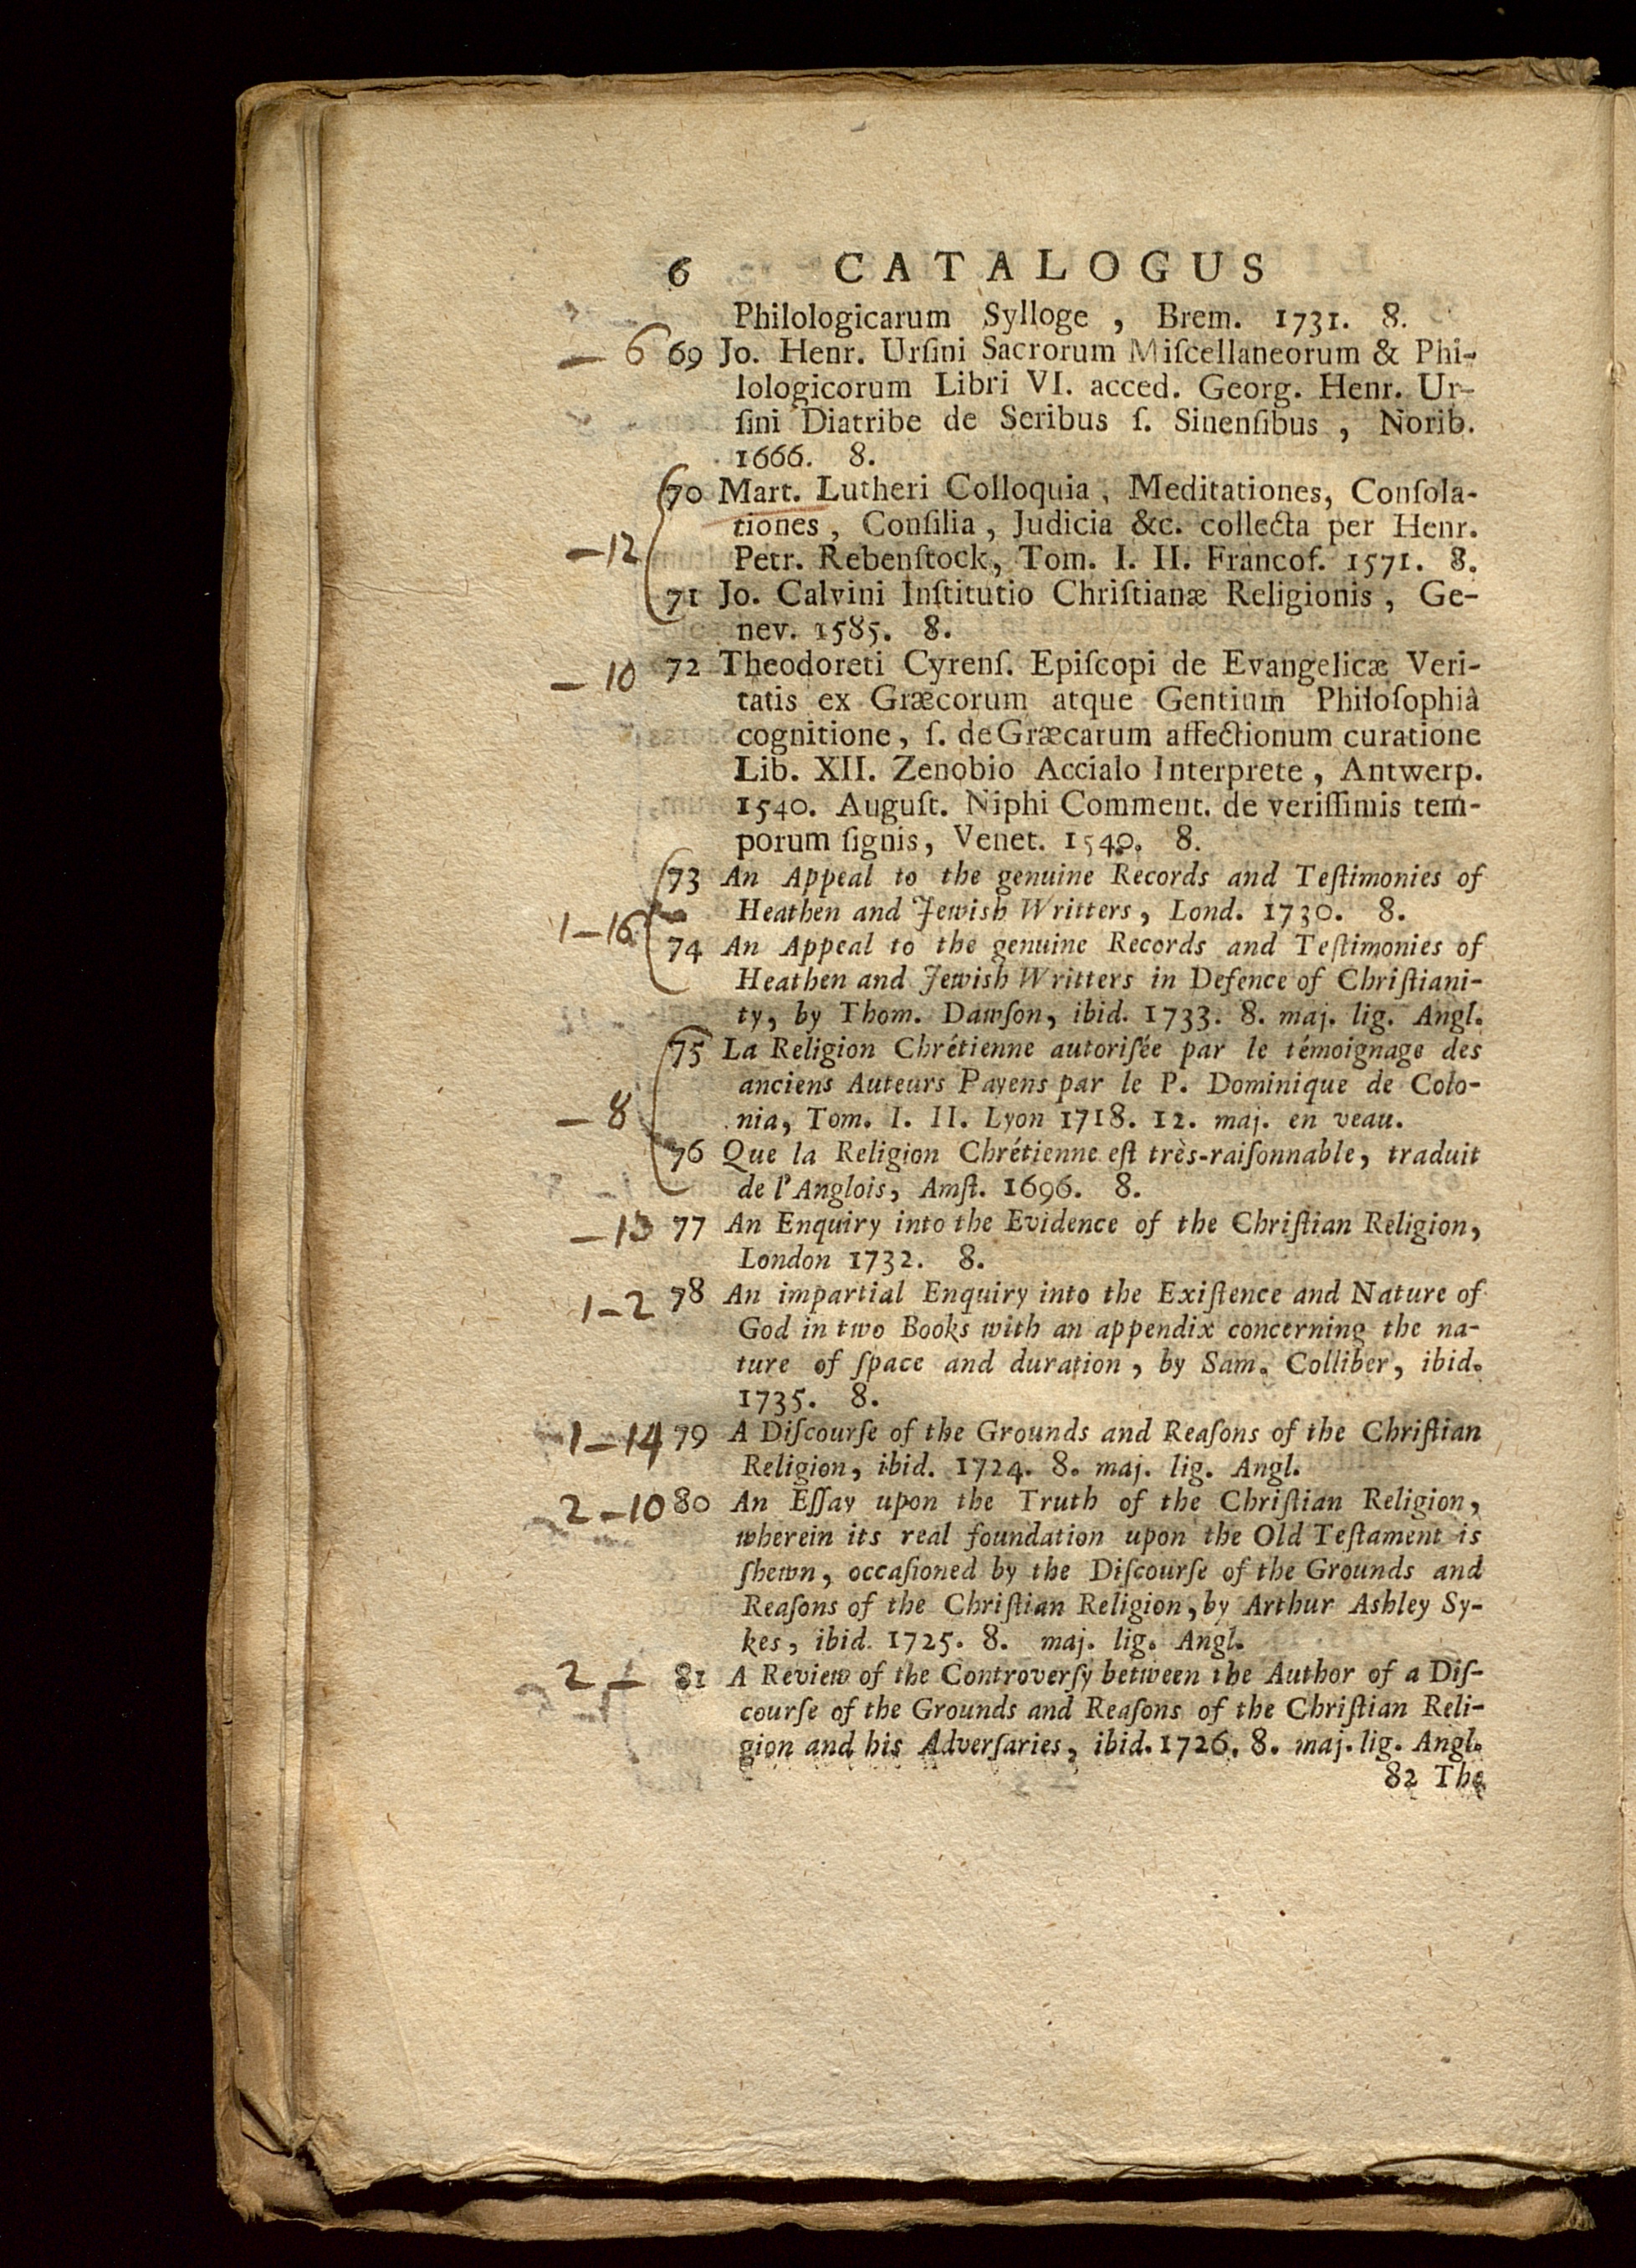 6 CATALOGUS
Philologicarum Sylloge , Brem. 1731. 8.
— 6 69 Jo. Henr. Urſini Sacrorum Miſcellaneorum & Phi-
lologicorum Libri VI. acced. Georg. Henr. Ur-
ſini Diatribe de Seribus ſ. Sinenſibus , Norib.
1666. 8.
70 Mart. Lutheri Colloquia , Meditationes, Conſola-
tiones , Conſilia , Judicia &c. collecta per Henr.
—12 Petr. Rebenſtock, Tom. I. II. Francof. 1571. 8.
71 Jo. Calvini Inſtitutio Chriſtianæ Religionis , Ge-
nev. 1585. 8.
— 10 72 Theodoreti Cyrenſ. Epiſcopi de Evangelicæ Veri-
tatis ex Græcorum atque Gentium Philoſophiâ
cognitione, ſ. de Græcarum affectionum curatione
Lib. XII. Zenobio Accialo Interprete , Antwerp.
1540. Auguſt. Niphi Comment. de veriſſimis tem-
porum ſignis, Venet. 1540. 8.
73 An Appeal to the genuine Records and Teſtimonies of
1—16 Heathen and Jewish Writters, Lond. 1730. 8.
74 An Appeal to the genuine Records and Teſtimonies of
Heathen and Jewish Writters in Defence of Chriſtiani-
ty, by Thom. Dawſon, ibid. 1733. 8. maj. lig. Angl.
75 La Religion Chrétienne autoriſée par le témoignage des
anciens Auteurs Payens par le P. Dominique de Colo-
— 8 nia, Tom. I. II. Lyon 1718. 12. maj. en veau.
76 Que la Religion Chrétienne eſt très-raiſonnable, traduit
de l'Anglois, Amſt. 1696. 8.
77 An Enquiry into the Evidence of the Chriſtian Religion,
London 1732. 8.
1—2 78 An impartial Enquiry into the Exiſtence and Nature of
God in two Books with an appendix concerning the na-
ture of ſpace and duration , by Sam. Colliber, ibid.
1735. 8.
1—14 79 A Diſcourſe of the Grounds and Reaſons of the Chriſtian
Religion, ibid. 1724. 8. maj. lig. Angl.
2—10 80 An Eſſay upon the Truth of the Chriſtian Religion,
wherein its real foundation upon the Old Teſtament is
ſhewn, occaſioned by the Diſcourſe of the Grounds and
Reaſons of the Chriſtian Religion, by Arthur Ashley Sy-
kes, ibid. 1725. 8. maj. lig. Angl.
2 — 81 A Review of the Controverſy between the Author of a Diſ-
courſe of the Grounds and Reaſons of the Chriſtian Reli-
gion and his Adverſaries, ibid. 1726. 8. maj. lig. Angl.
82 The